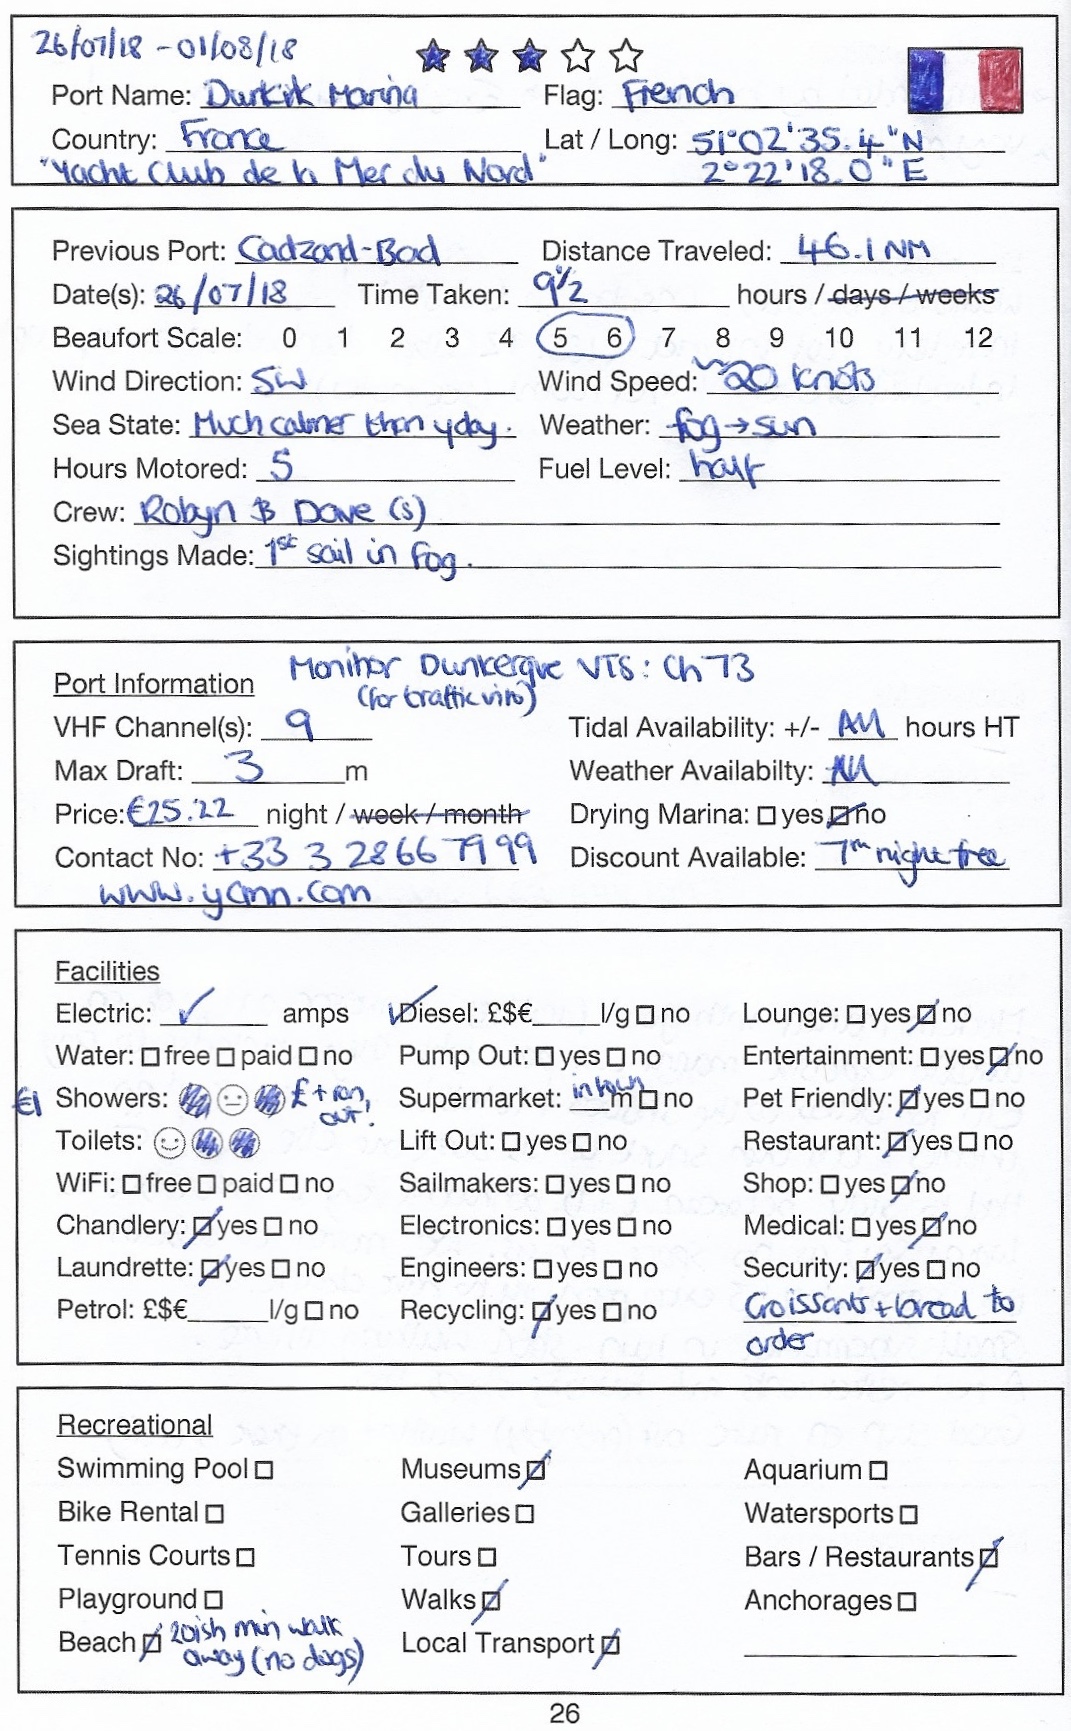 26/07/18 - 01/08/18
Port Name: Dunkirk Marina Flag: French
Country: France Lat / Long: 51°02'35.4"N
"Yacht Club de la Mer du Nord" 2°22'18.0"E
Previous Port: Cadzand-Bad Distance Traveled: 46.1 NM
Date(s): 26/07/18 Time Taken: 9½ hours / days / weeks
Beaufort Scale: 0 1 2 3 4 5 6 7 8 9 10 11 12
Wind Direction: SW Wind Speed: ~20 knots
Sea State: Much calmer than yday. Weather: fog → sun
Hours Motored: 5 Fuel Level: half
Crew: Robyn & Dave (s)
Sightings Made: 1st sail in fog.
Monitor Dunkerque VTS: Ch 73
Port Information (for traffic info)
VHF Channel(s): 9 Tidal Availability: +/- All hours HT
Max Draft: 3 m Weather Availabilty: All
Price: €25.22 night / week / month Drying Marina: yes no
Contact No: +33 3 28 66 79 99 Discount Available: 7th night free
www.ycmn.com
Facilities
Electric: ✓ amps ✓ Diesel: £$€ l/g no Lounge: yes no
Water: free paid no Pump Out: yes no Entertainment: yes no
€1 Showers: £ + ran out! Supermarket: in town m no Pet Friendly: yes no
Toilets: Lift Out: yes no Restaurant: yes no
WiFi: free paid no Sailmakers: yes no Shop: yes no
Chandlery: yes no Electronics: yes no Medical: yes no
Laundrette: yes no Engineers: yes no Security: yes no
Petrol: £$€ l/g no Recycling: yes no Croissants + bread to
order
Recreational
Swimming Pool Museums Aquarium
Bike Rental Galleries Watersports
Tennis Courts Tours Bars / Restaurants
Playground Walks Anchorages
Beach 20ish min walk away (no dogs) Local Transport
26